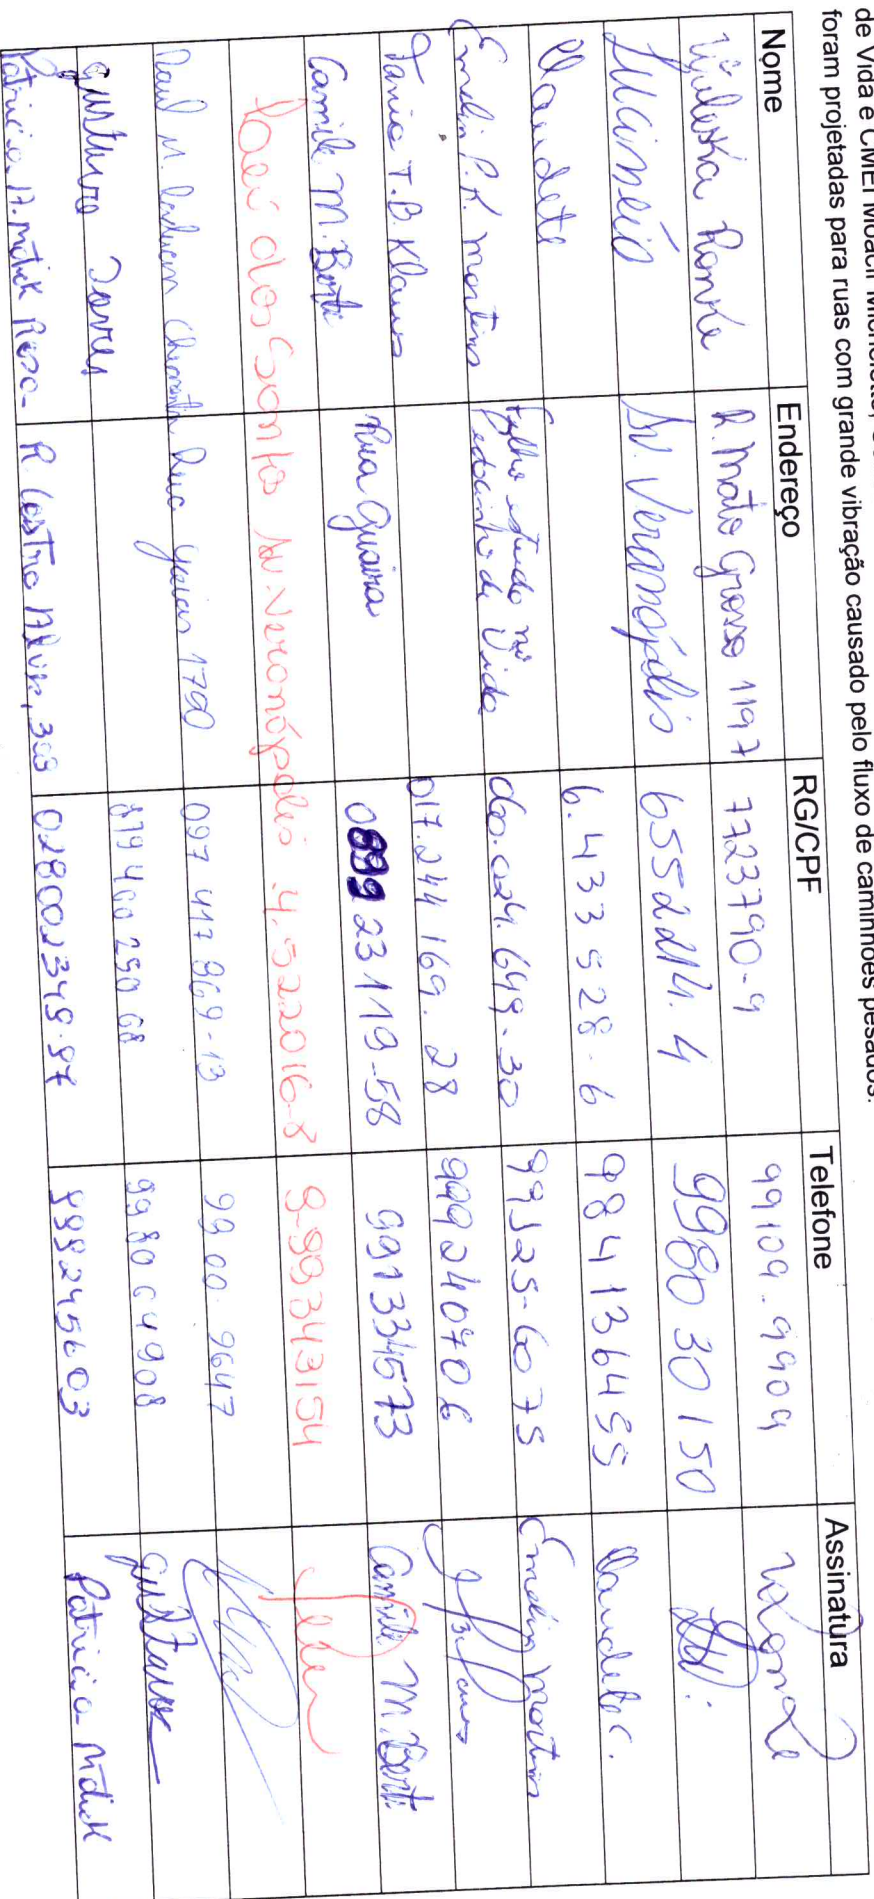 de Vida e CMEI Moacir Micheletto,
foram projetadas para ruas com grande vibração causado pelo fluxo de caminhões pesados.
Nome Endereço RG/CPF Telefone Assinatura
Ronke R. Mato Grosso 1197 7723790-9 99109-9909
Lucinéia Av. Veranópolis 6552214.4 998030150
Claudete 6.433528-6 984136455 Claudete C.
Emelin P.K. Martins Filho estuda no pedacinho de Vida 060.024.649-30 99925-6075 Emelin Martins
Tania T.B. Klaus 017.244169.28 999240706
Camile M. Berti Rua Guaira 089923119-58 991334573 Camile M. Berti
dos Santos Av. Veronópolis 4.522016-8 9-99343154
Raul M. Rua Goias 1790 097 417 969-13 9900-9647
Gustavo Torres 879 460 290 68 9980 64908 Gustavo
Patricia A. Mdick Rosa R Castro Alves, 303 028002349-97 999245603 Patricia Mdick